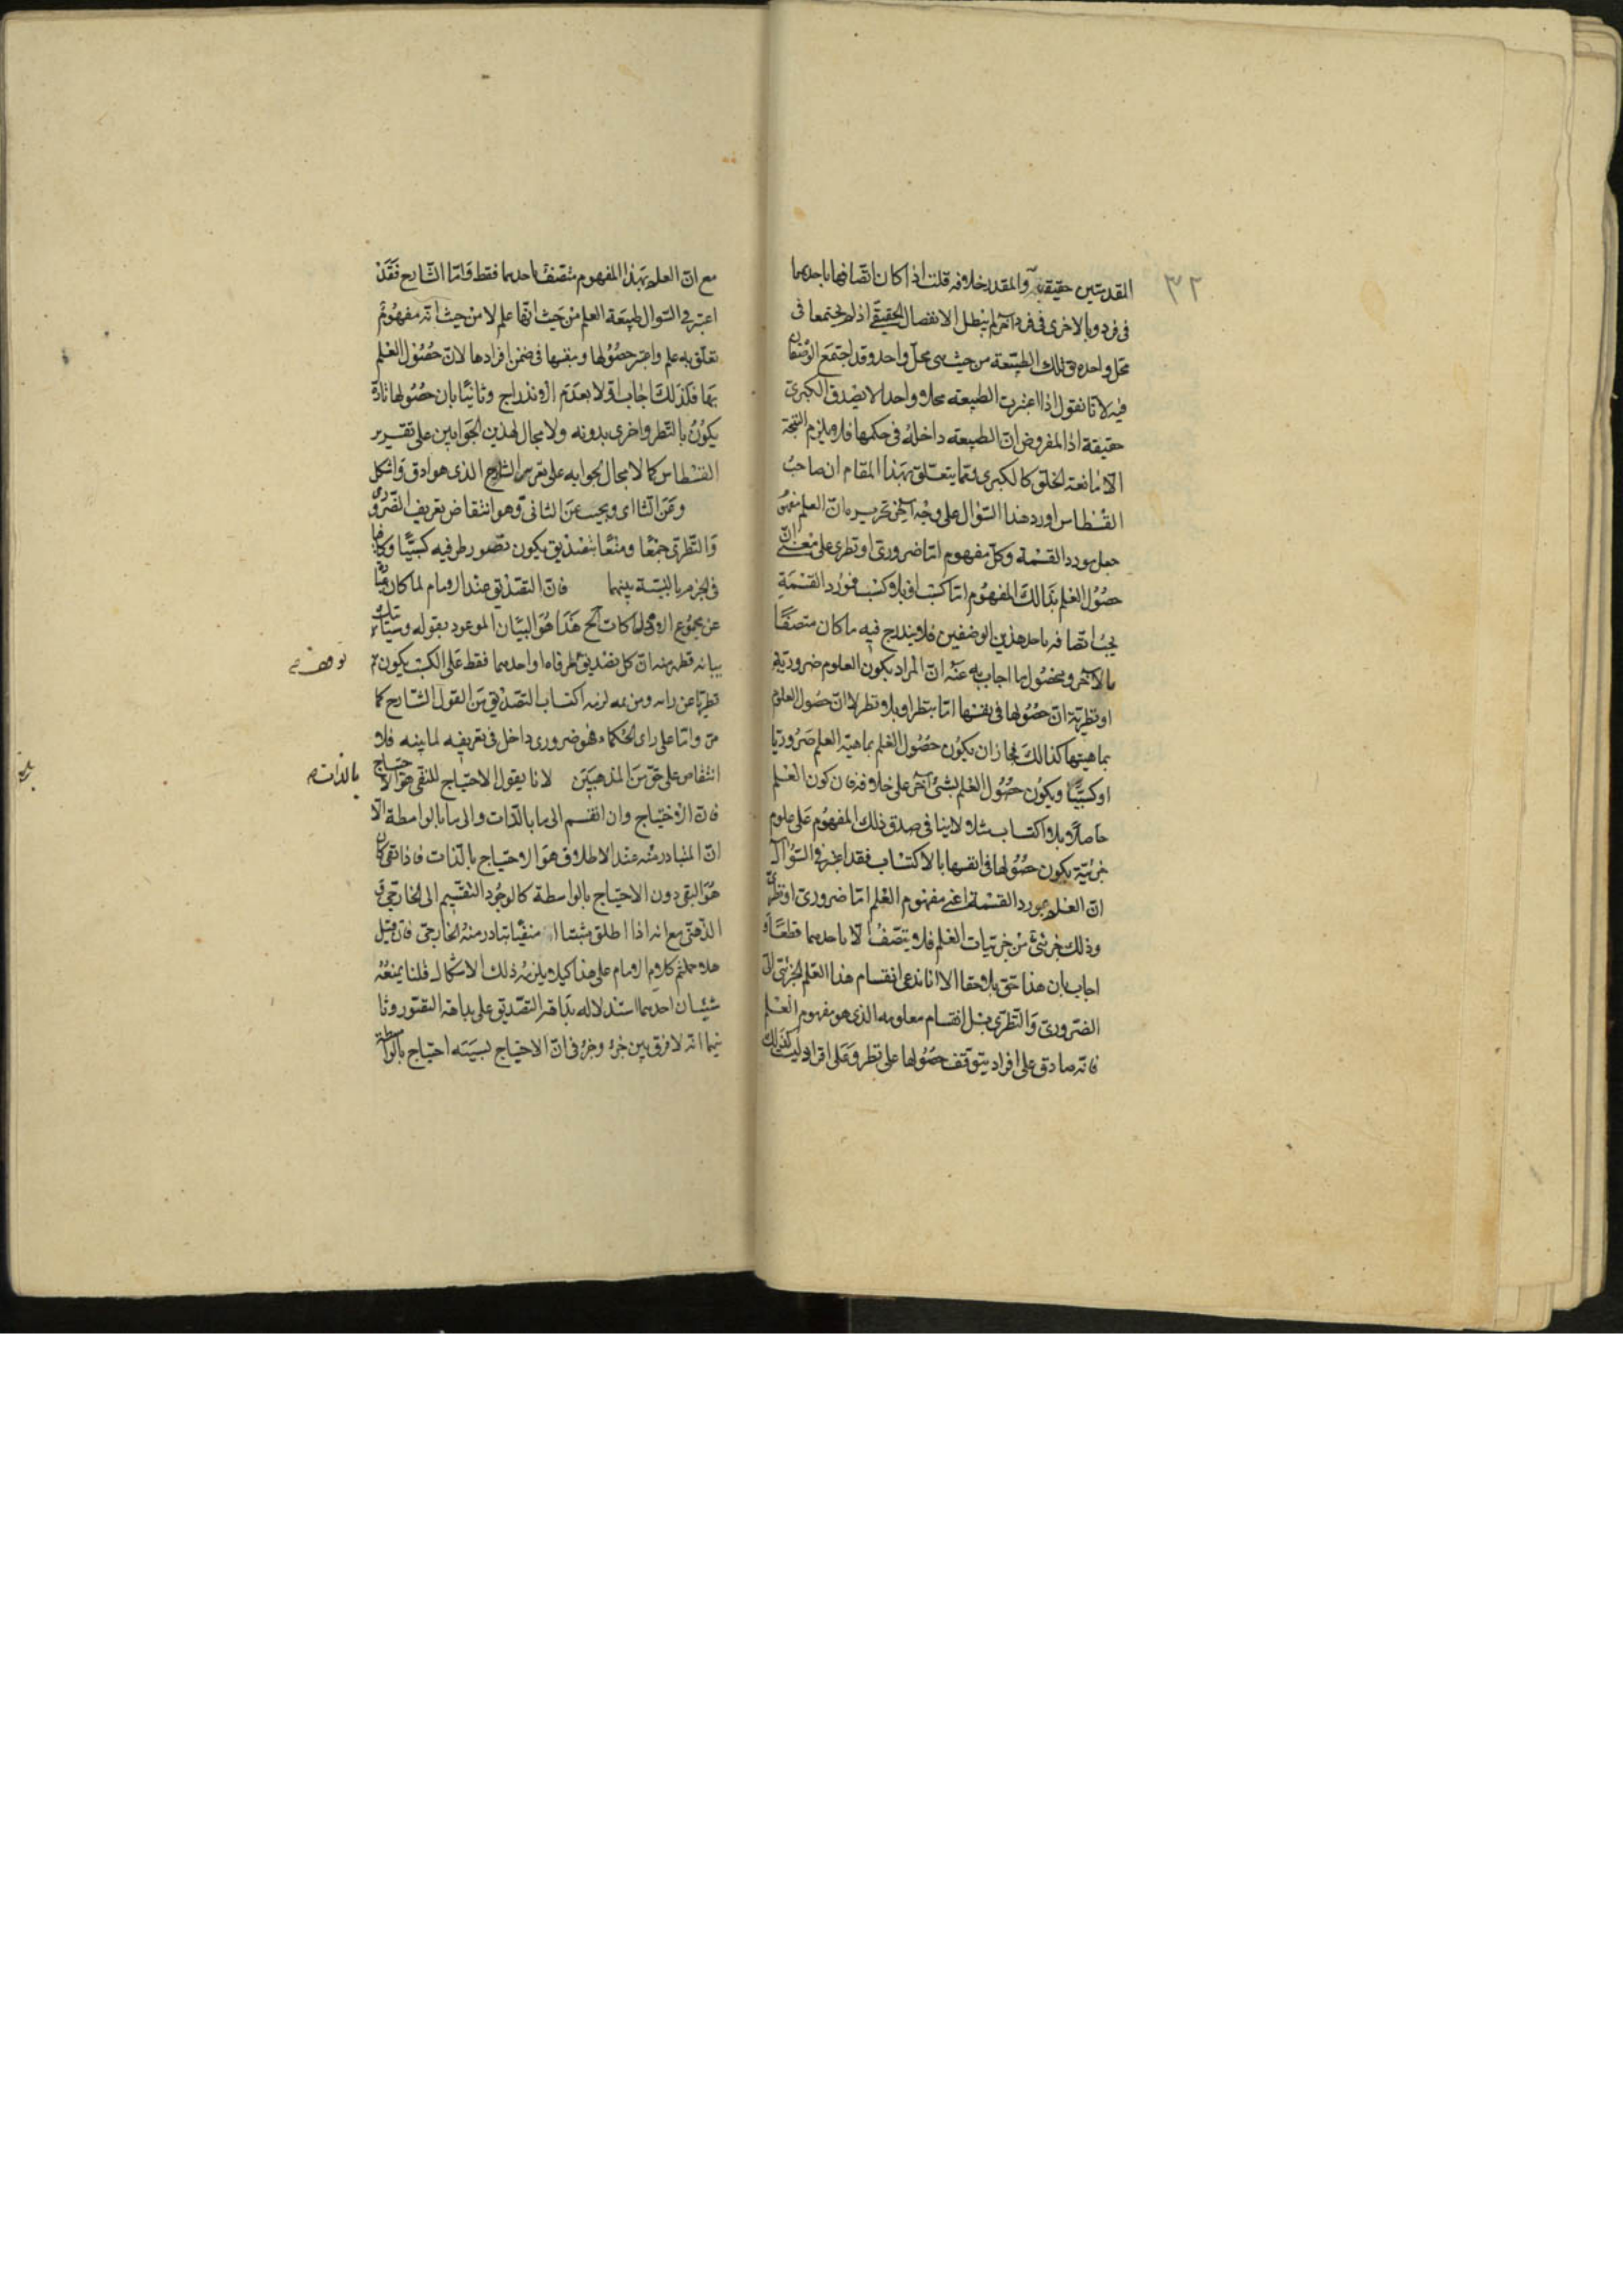 ٣٢
المقدمتين حقيقية والمقدر خلافه قلت اذا كان اتصافها باحدهما
فى فرد وبالاخرى فى فرد آخر لم يبطل الانفصال الحقيقى اذ لم يجتمعا فى
محل واحد فى تلك الطبيعة من حيث هى محل واحد وقد اجتمع الوصفان
فيه لانا نقول اذا اعتبرت الطبيعة محلا واحدا لا يصدق الكبرى
حقيقة اذ المفروض ان الطبيعة داخلة فى حكمها فلا يلزم النتيجة
الا مانعة الخلو كالكبرى ومما يتعلق بهذا المقام ان صاحب
القسطاس اورد هذا السؤال على وجه آخر تحريره ان العلم مفهوم
جعل مورد القسمة وكل مفهوم اما ضرورى او نظرى على معنى ان
حصول العلم بذالك المفهوم اما كسب او بلا كسب فمورد القسمة
يجب اتصافه باحد هذين الوصفين فلا يندرج فيه ما كان متصفا
بالآخر ومحصول ما اجاب به عنه ان المراد بكون العلوم ضرورية
او نظرية ان حصولها فى نفسها اما بنظر او بلا نظر لا ان حصول العلوم
بماهيتها كذالك فجاز ان يكون حصول العلم بماهية العلم ضروريا
او كسبيا ويكون حصول العلم بشئ آخر على خلافه فان كون العلم
حاصلا بلا اكتساب مثلا لا ينافى صدق ذلك المفهوم على علوم
جزئية يكون حصولها فى انفسها بالاكتساب فقد اعتبر فى السؤال
ان العلم بمورد القسمة اعنى مفهوم العلم اما ضرورى او نظرى
وذلك جزئى من جزئيات العلم فلا يتصف الا باحدهما قطعا و
اجاب بان هذا حق بلا خفا الا انا ندعى انقسام هذا العلم الجزئى الى
الضرورى والنظرى بل انقسام معلومه الذى هو مفهوم العلم
فانه صادق على افراد يتوقف حصولها على نظر وعلى افراد ليست كذلك
مع ان العلم بهذا المفهوم متصف باحدهما فقط واما الشارح فقد
اعتبر فى السوال طبيعة العلم من حيث انها علم لا من حيث انه مفهوم
تعلق به علم واعتبر حصولها بنفسها فى ضمن افرادها لان حصول العلم
بها فلذلك اجاب اولا بعدم الاندراج وثانيا بان حصولها تارة
يكون بالنظر واخرى بدونه ولا مجال لهذين الجوابين على تقرير
القسطاس كما لا مجال لجوابه على تقرير الشارح الذى هو ادق واشكل
وعن الثا اى ويجيب عن الثانى وهو انتقاض تعريف الضرورى
والنظرى جمعا ومنعا بتصديق يكون تصور طرفيه كسبيا وكافيا
فى الجزم بالنسبة بينهما فان التصديق عند الامام لما كان
عن مجموع الادراكات الخ هذا هو البيان الموعود بقوله وسياتيك
بيانه فظهر منه ان كل تصديق طرفاه او احدهما فقط على الكسب يكون
نظريا عن رايه ومن ثمه لزمه اكتساب التصديق من القول الشارح كما
مر واما على راى الحكماء فهو ضرورى داخل فى تعريفه لما بينه فلا
انتقاض على حق من المذهبين لانا يقول الاحتياج المنفى هو الاحتياج
فان الاحتياج وان انقسم الى ما بالذات والى ما بالواسطة الا
ان المتبادر منه عند الاطلاق هو الاحتياج بالذات فاذا نفى كان
هو المنفى دون الاحتياج بالواسطة كالوجود المنقسم الى الخارجى و
الذهنى مع انه اذا اطلق مثبتا او منفيا تبادر منه الخارجى فان قيل
هلا حملتم كلام الامام على هذا كيلا يلزمه ذلك الاشكال قلنا يمنعه
شيئان احدهما استدلاله بداهة التصديق على بداهة التصور وثا
نيهما انه لا فرق بين جزء وجزء فى ان الاحتياج بسببه احتياج بالواسطة
بالذات